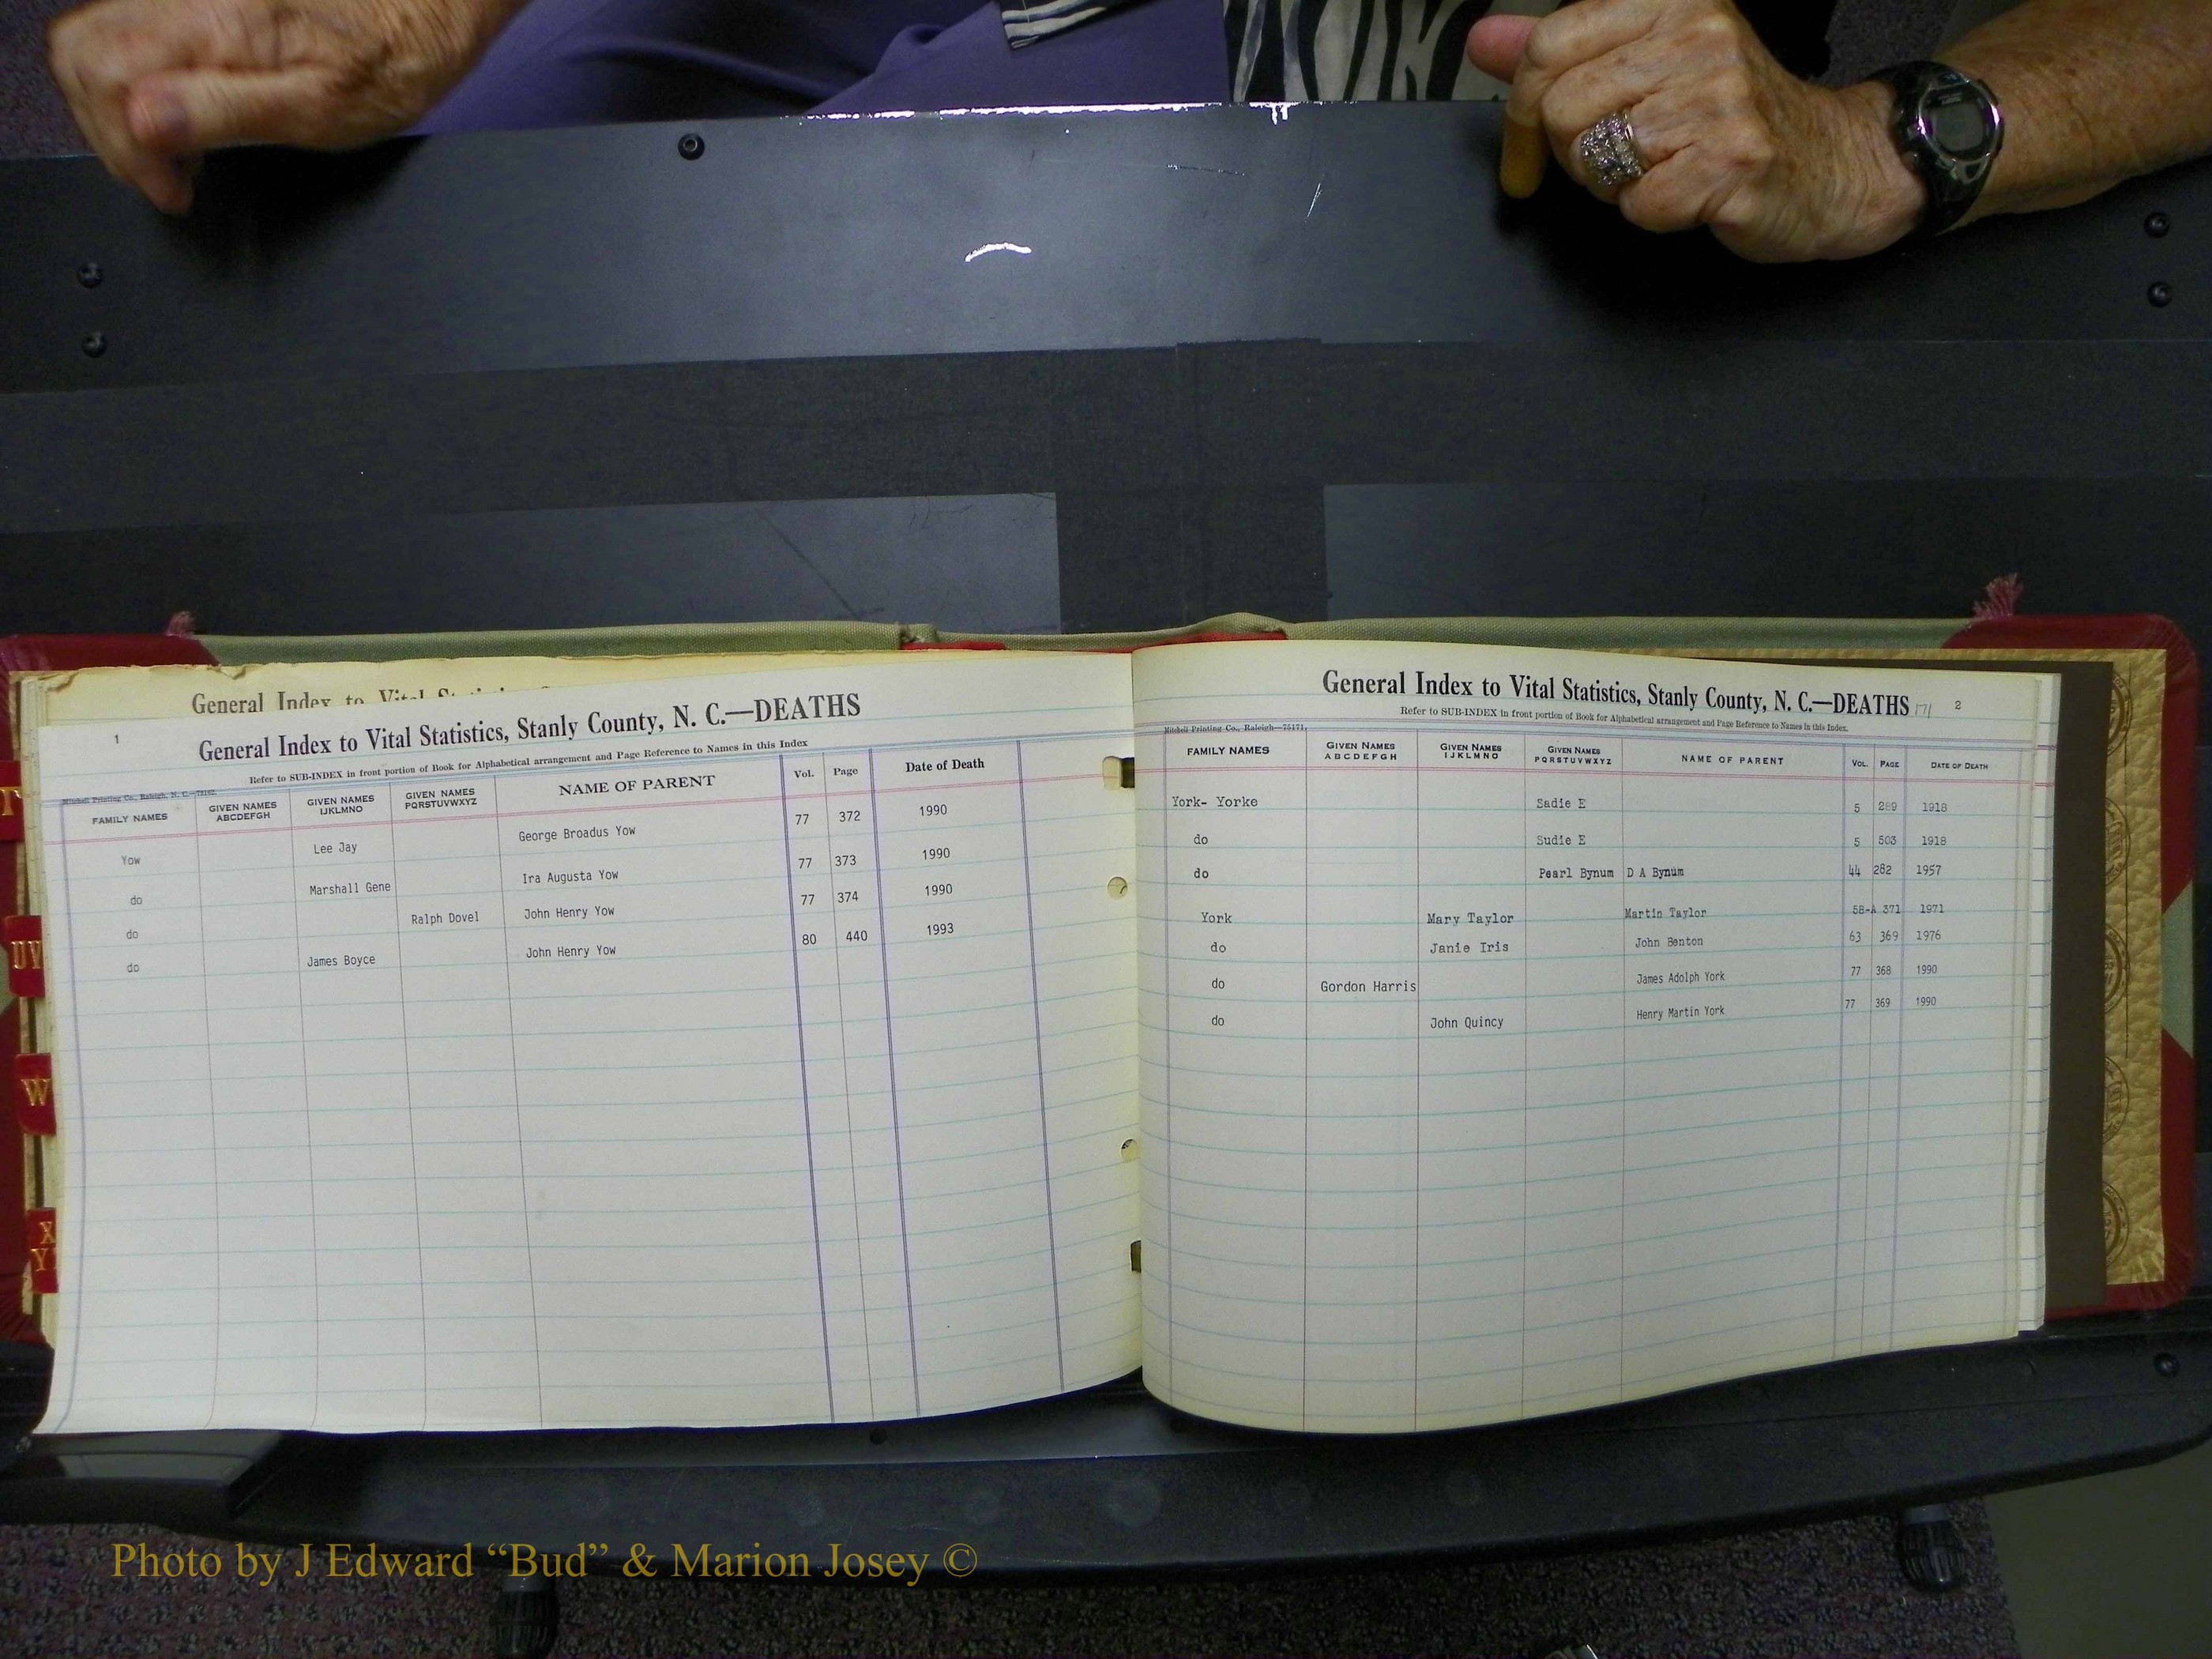 General Index to Vital Statistics
1
General Index to Vital Statistics, Stanly County, N. C.—DEATHS
Refer to SUB-INDEX in front portion of Book for Alphabetical arrangement and Page Reference to Names in this Index
Mitchell Printing Co., Raleigh, N. C.
FAMILY NAMES GIVEN NAMES ABCDEFGH GIVEN NAMES IJKLMNO GIVEN NAMES PQRSTUVWXYZ NAME OF PARENT Vol. Page Date of Death
Yow Lee Jay George Broadus Yow 77 372 1990
do Marshall Gene Ira Augusta Yow 77 373 1990
do Ralph Dovel John Henry Yow 77 374 1990
do James Boyce John Henry Yow 80 440 1993
T
UV
W
X
Y
General Index to Vital Statistics, Stanly County, N. C.—DEATHS 171 2
Refer to SUB-INDEX in front portion of Book for Alphabetical arrangement and Page Reference to Names in this Index.
Mitchell Printing Co., Raleigh—75171
FAMILY NAMES GIVEN NAMES ABCDEFGH GIVEN NAMES IJKLMNO GIVEN NAMES PQRSTUVWXYZ NAME OF PARENT VOL. PAGE DATE OF DEATH
York- Yorke Sadie E 5 289 1918
do Sudie E 5 503 1918
do Pearl Bynum D A Bynum 44 282 1957
York Mary Taylor Martin Taylor 58-A 371 1971
do Janie Iris John Benton 63 369 1976
do Gordon Harris James Adolph York 77 368 1990
do John Quincy Henry Martin York 77 369 1990
Photo by J Edward “Bud” & Marion Josey ©